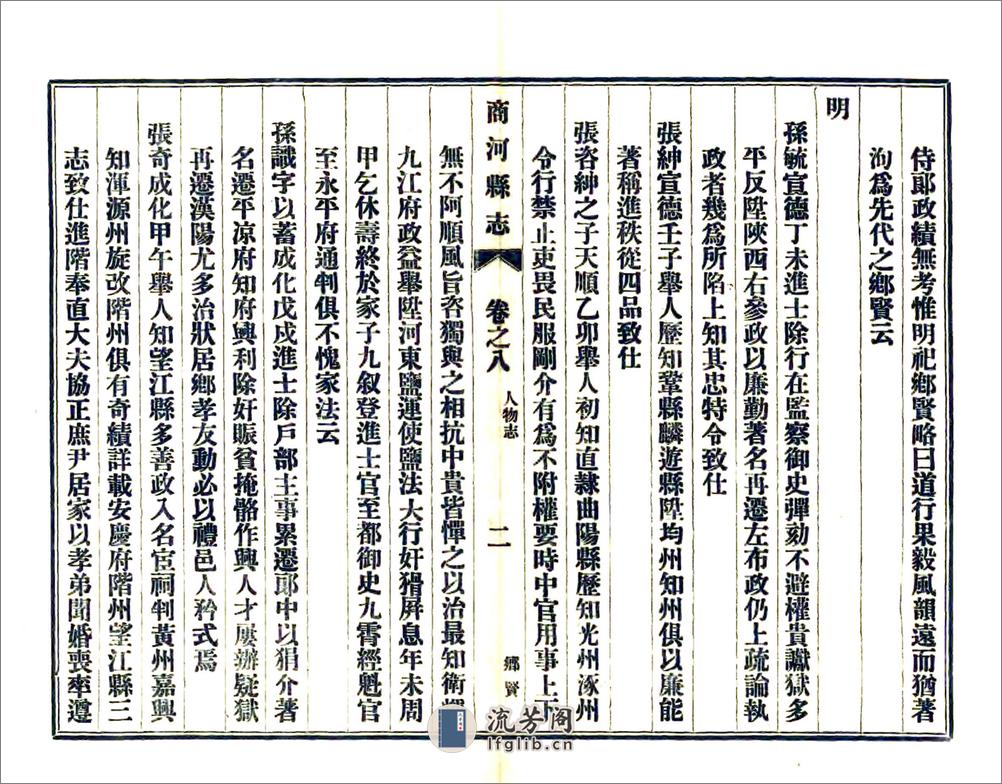 侍郞政績無考惟明祀鄉賢略曰道行果毅風韻遠而猶著
洵爲先代之鄉賢云
明
孫毓宣德丁未進士除行在監察御史彈劾不避權貴讞獄多
平反陞陝西右參政以廉勤著名再遷左布政仍上疏論執
政者幾爲所陷上知其忠特令致仕
張紳宣德壬子舉人歷知鞏縣麟遊縣陞均州知州俱以廉能
著稱進秩從四品致仕
張咨紳之子天順乙卯舉人初知直隸曲陽縣歷知光州涿州
令行禁止吏畏民服剛介有爲不附權要時中官用事上下
商河縣志
卷之八
人物志
二
鄉賢
無不阿順風旨咨獨與之相抗中貴皆憚之以治最知衛輝
九江府政益舉陞河東鹽運使鹽法大行奸猾屏息年未周
甲乞休壽終於家子九叙登進士官至都御史九霄經魁官
至永平府通判俱不愧家法云
孫識字以蓄成化戊戌進士除戶部主事累遷郞中以狷介著
名遷平凉府知府興利除奸賑貧掩骼作興人才屢辦疑獄
再遷漢陽尤多治狀居鄉孝友動必以禮邑人矜式焉
張奇成化甲午舉人知望江縣多善政入名宦祠判黃州嘉興
知渾源州旋改階州俱有奇績詳載安慶府階州望江縣三
志致仕進階奉直大夫協正庶尹居家以孝弟聞婚喪率遵
流芳阁
lfglib.cn